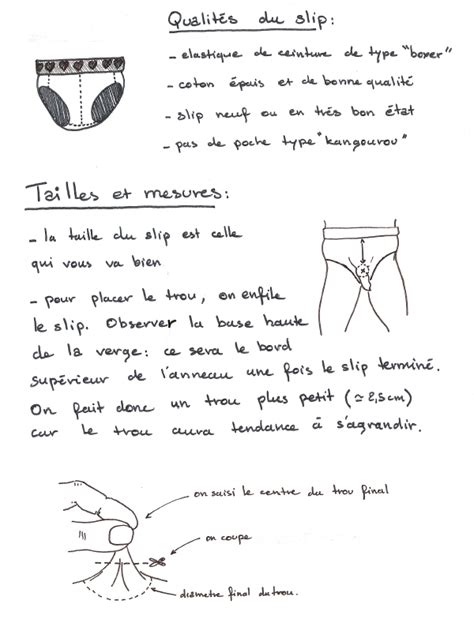 Qualités du slip:
- elastique de ceinture de type "boxer"
- coton épais et de bonne qualité
- slip neuf ou en très bon état
- pas de poche type "kangourou"
Tailles et mesures:
- la taille du slip est celle
qui vous va bien
- pour placer le trou, on enfile
le slip. Observer la base haute
de la verge: ce sera le bord
supérieur de l'anneau une fois le slip terminé.
On fait donc un trou plus petit (≃ 2,5cm)
car le trou aura tendance à s'agrandir.
on saisi le centre du trou final
on coupe
diametre final du trou.